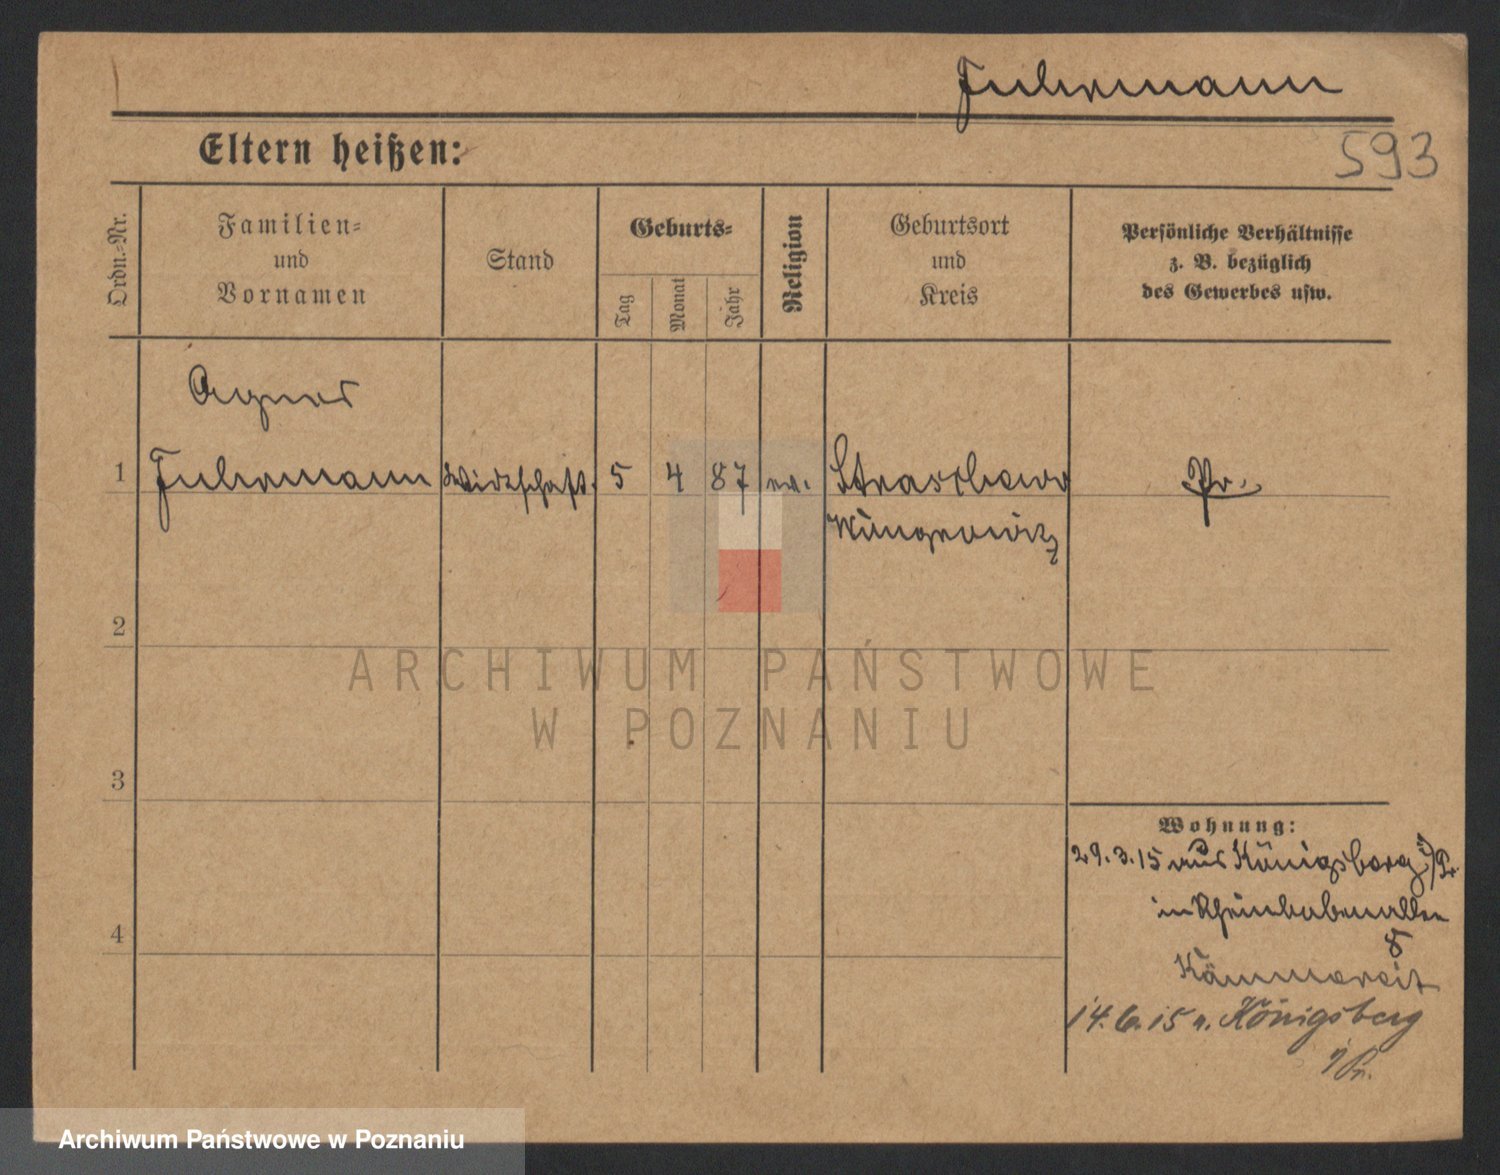 Fuhrmann
593
Eltern heißen:
Ordn.-Nr.
Familien-
und
Vornamen
Stand
Geburts-
Tag
Monat
Jahr
Religion
Geburtsort
und
Kreis
Persönliche Verhältnisse
z. B. bezüglich
des Gewerbes usw.
Agnes
1 Fuhrmann Wirtschaft. 5 4 87 ev. Straschewo Pr.
2
3
4
Wohnung:
29.3.15 aus Königsberg i/Pr.
in Rheinbabenallee
8
Kämmereit
14.6.15 n. Königsberg
i/Pr.
ARCHIWUM PAŃSTWOWE
W POZNANIU
Archiwum Państwowe w Poznaniu